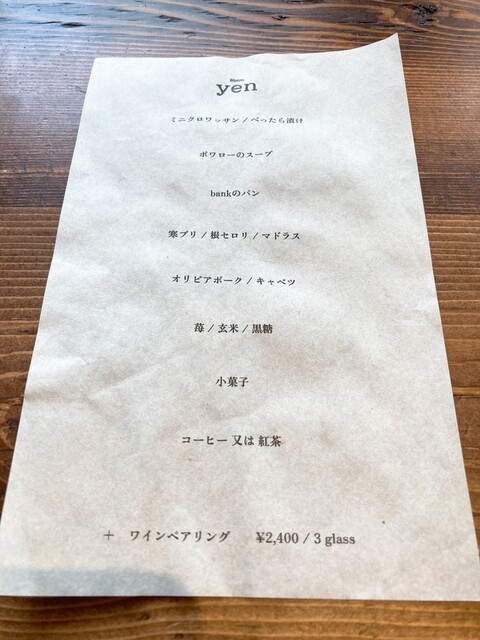 Bistro
yen
ミニクロワッサン / べったら漬け
ポワローのスープ
bankのパン
寒ブリ / 根セロリ / マドラス
オリビアポーク / キャベツ
苺 / 玄米 / 黒糖
小菓子
コーヒー 又は 紅茶
＋ ワインペアリング ¥2,400 / 3 glass